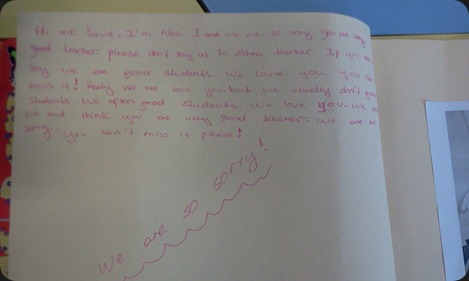 Hi mr. David. I'm I and we are so sorry. You are very
good teacher please don't say us to zehra teacher. If you
say we are good students. We love you. You can
miss it! Really we are love you but we usually don't good
students. We often good students. We love you. We
and think you are very good teacher. We are so
sorry. you can't miss it please!
We are so sorry!